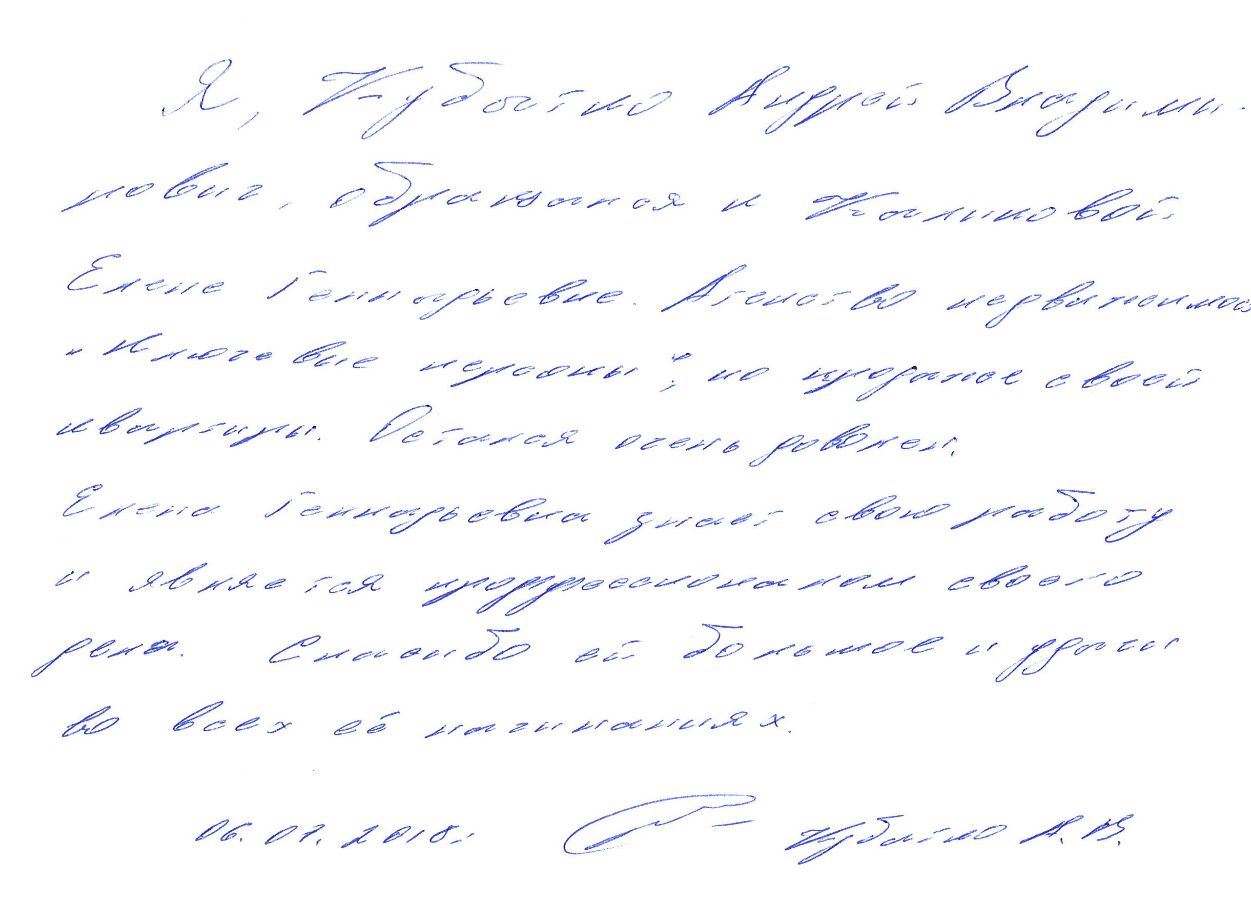 Я, Кубатко Андрей Владими-
рович, обращался к Каликовой
Елене Геннадьевне. Агенство недвижимос
"Ключевые персоны", по продаже своей
квартиры. Остался очень доволен.
Елена Геннадьевна знает свою работу
и является проффессионалом своего
дела. Спасибо ей большое и удачи
во всех её начинаниях.
06.07.2018г Кубатко А.В.